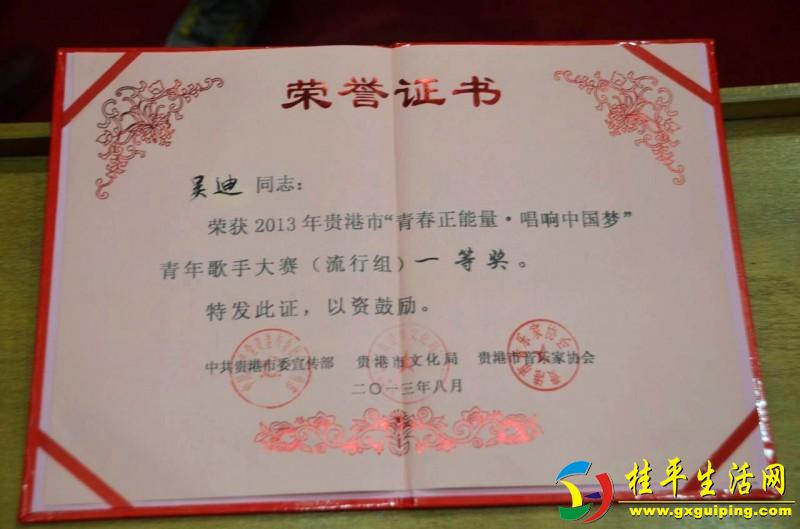 荣誉证书
吴迪 同志：
荣获2013年贵港市“青春正能量·唱响中国梦”
青年歌手大赛（流行组）一等奖。
特发此证，以资鼓励。
中共贵港市委宣传部 贵港市文化局 贵港市音乐家协会
二〇一三年八月
桂平生活网
www.gxguiping.com